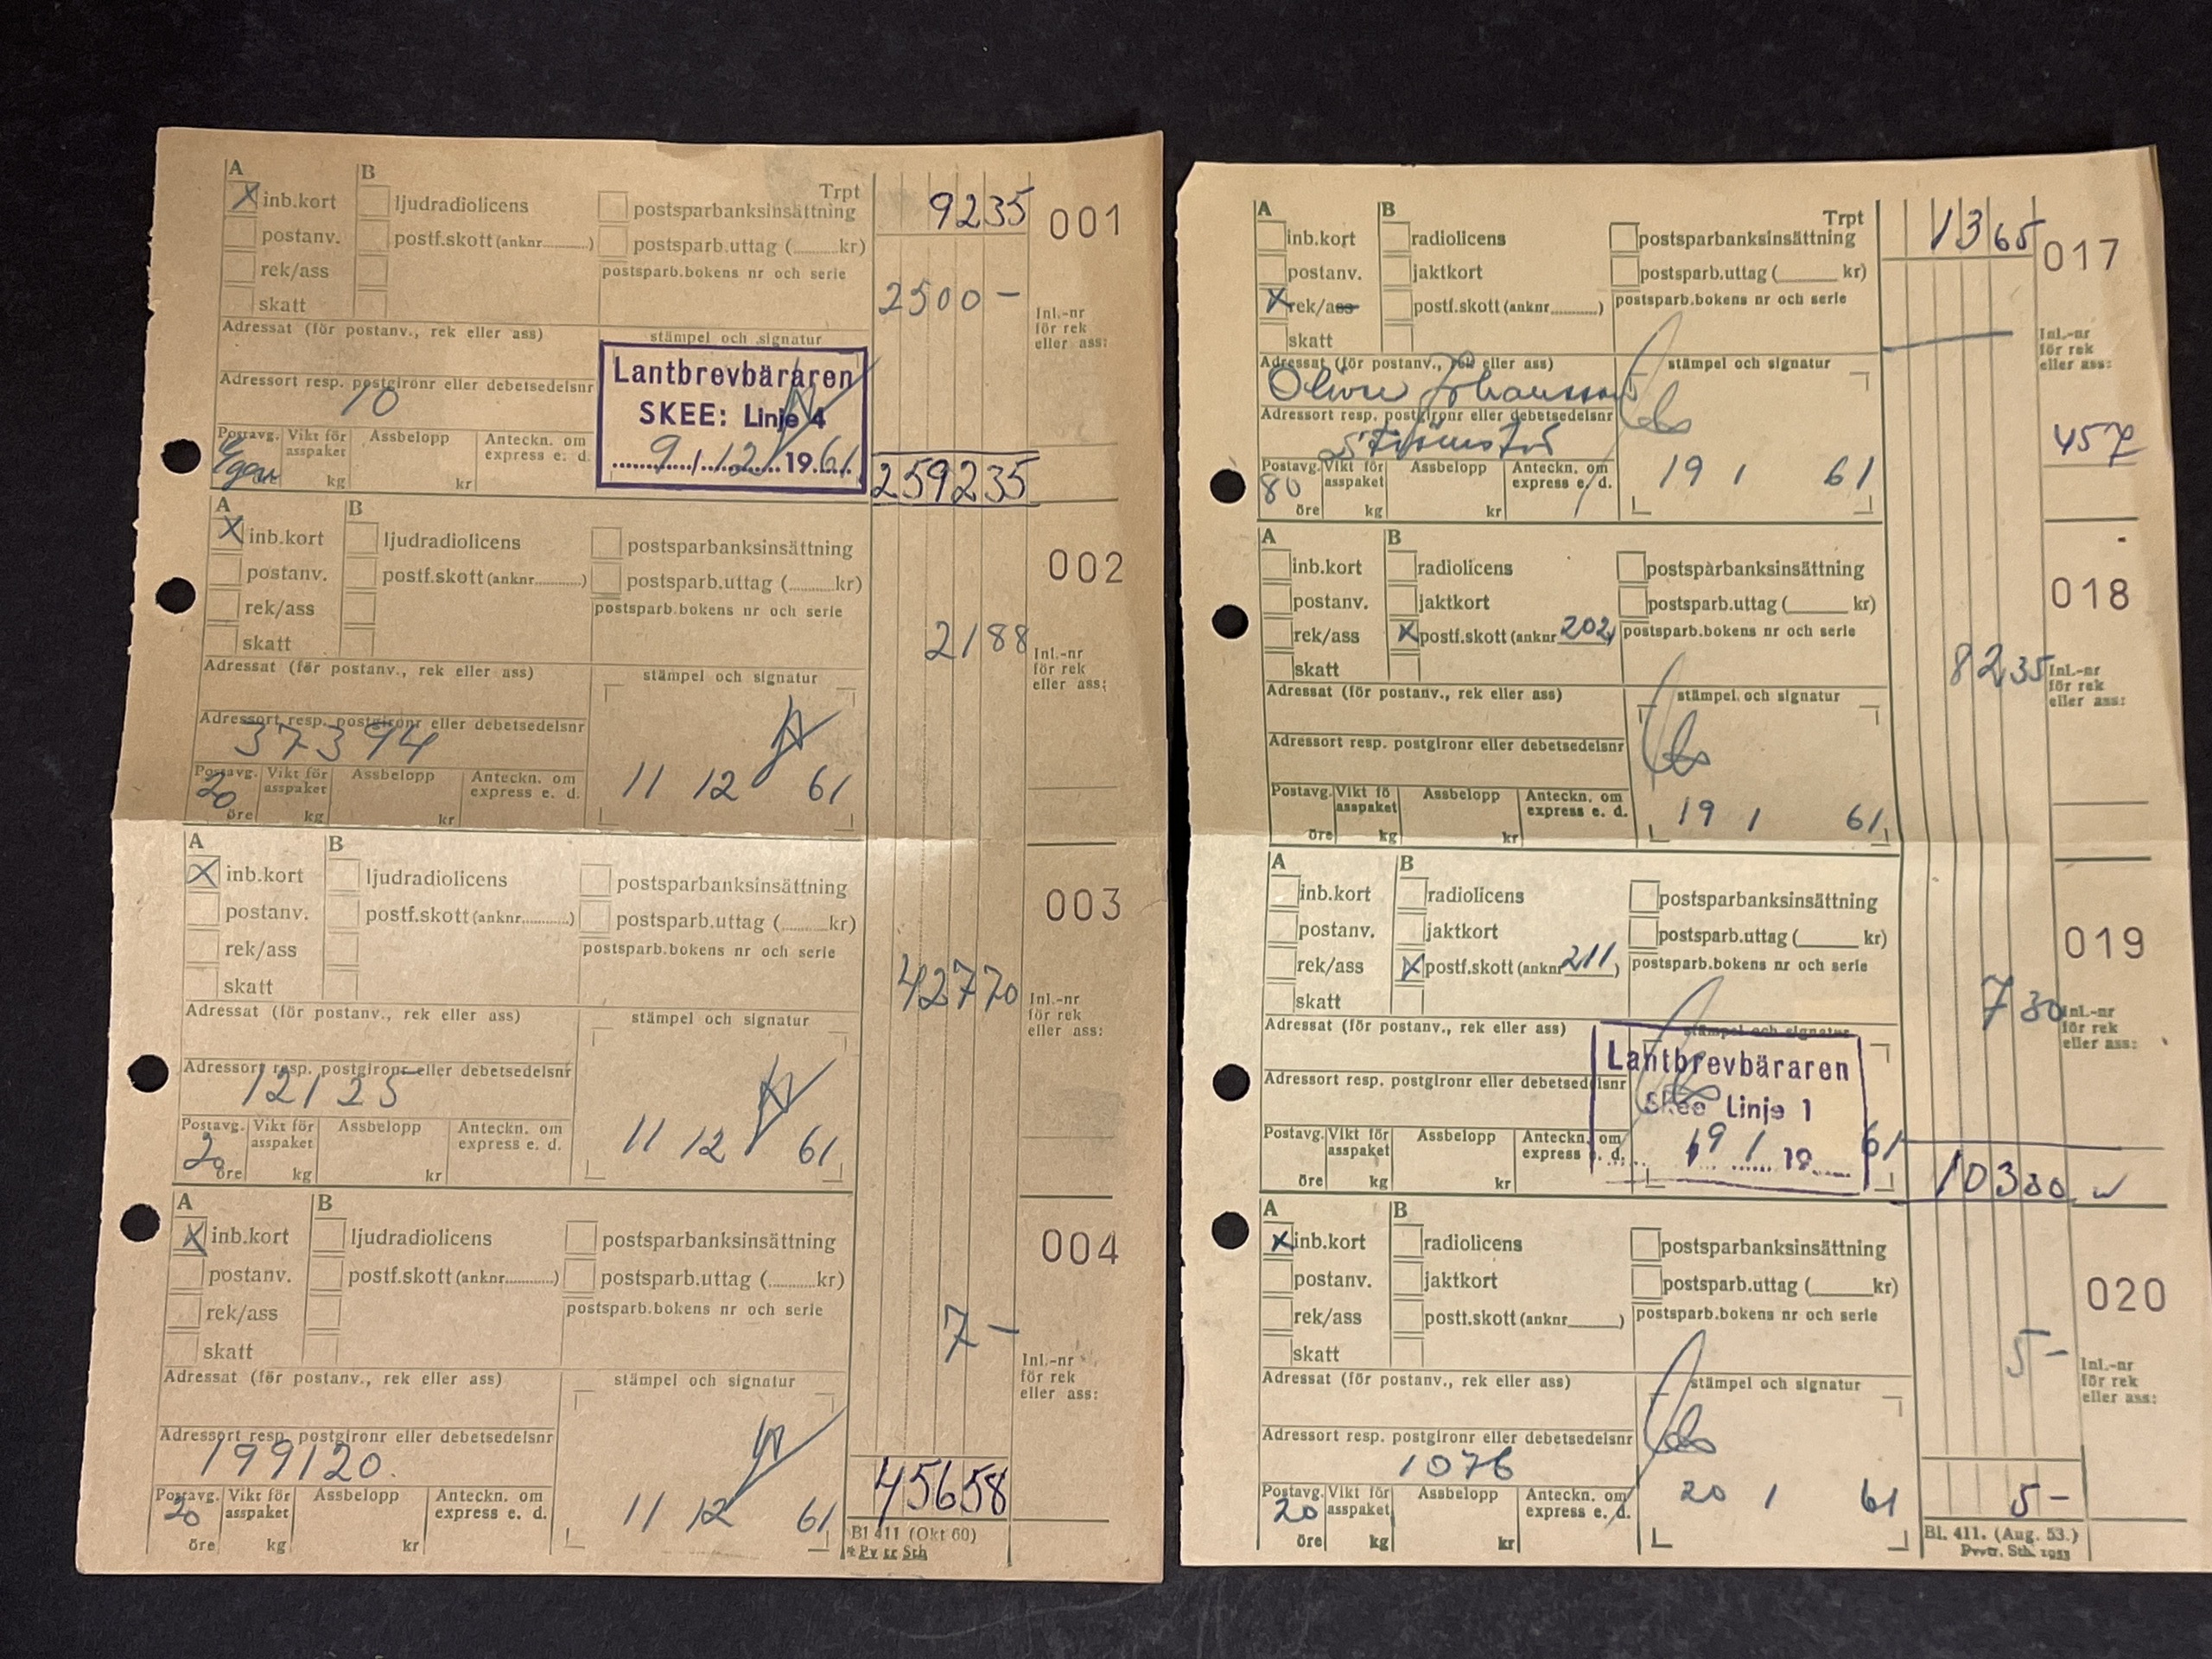 A B Trpt 9235 001
X inb.kort ljudradiolicens postsparbanksinsättning
postanv. postf.skott (anknr..........) postsparb.uttag (........kr)
rek/ass postsparb.bokens nr och serie
skatt 2500 —
Adressat (för postanv., rek eller ass) stämpel och signatur
Inl.-nr
för rek
eller ass:
Lantbrevbäraren
SKEE: Linje 4
9/12 1961
Adressort resp. postgironr eller debetsedelsnr
10
Postavg. Vikt för asspaket Assbelopp Anteckn. om express e. d.
kg kr
259235
A B 002
X inb.kort ljudradiolicens postsparbanksinsättning
postanv. postf.skott (anknr..........) postsparb.uttag (........kr)
rek/ass postsparb.bokens nr och serie
skatt 2188
Adressat (för postanv., rek eller ass) stämpel och signatur
Inl.-nr
för rek
eller ass:
Adressort resp. postgironr eller debetsedelsnr
37394
Postavg. Vikt för asspaket Assbelopp Anteckn. om express e. d.
20 öre kg kr
11 12 61
A B 003
X inb.kort ljudradiolicens postsparbanksinsättning
postanv. postf.skott (anknr..........) postsparb.uttag (........kr)
rek/ass postsparb.bokens nr och serie
skatt 42770
Adressat (för postanv., rek eller ass) stämpel och signatur
Inl.-nr
för rek
eller ass:
Adressort resp. postgironr eller debetsedelsnr
12125
Postavg. Vikt för asspaket Assbelopp Anteckn. om express e. d.
20 öre kg kr
11 12 61
A B 004
X inb.kort ljudradiolicens postsparbanksinsättning
postanv. postf.skott (anknr..........) postsparb.uttag (........kr)
rek/ass postsparb.bokens nr och serie
skatt 7 —
Adressat (för postanv., rek eller ass) stämpel och signatur
Inl.-nr
för rek
eller ass:
Adressort resp. postgironr eller debetsedelsnr
199120.
Postavg. Vikt för asspaket Assbelopp Anteckn. om express e. d.
20 öre kg kr
11 12 61
45658
Bl 411 (Okt 60)
A B Trpt 1365 017
inb.kort radiolicens postsparbanksinsättning
postanv. jaktkort postsparb.uttag (______ kr)
X rek/ass postf.skott (anknr..........) postsparb.bokens nr och serie
skatt
Inl.-nr
för rek
eller ass:
Adressat (för postanv., rek eller ass) stämpel och signatur
Johansson
Adressort resp. postgironr eller debetsedelsnr
457
Postavg. Vikt för asspaket Assbelopp Anteckn. om express e. d.
80 öre kg kr
19 1 61
A B 018
inb.kort radiolicens postsparbanksinsättning
postanv. jaktkort postsparb.uttag (______ kr)
rek/ass X postf.skott (anknr 202) postsparb.bokens nr och serie
skatt 8235
Inl.-nr
för rek
eller ass:
Adressat (för postanv., rek eller ass) stämpel och signatur
Adressort resp. postgironr eller debetsedelsnr
Postavg. Vikt för asspaket Assbelopp Anteckn. om express e. d.
öre kg kr
19 1 61
A B 019
inb.kort radiolicens postsparbanksinsättning
postanv. jaktkort postsparb.uttag (______ kr)
rek/ass X postf.skott (anknr 211) postsparb.bokens nr och serie
skatt 730
Inl.-nr
för rek
eller ass:
Adressat (för postanv., rek eller ass) stämpel och signatur
Lantbrevbäraren
Skee Linje 1
19 1 19 61
Adressort resp. postgironr eller debetsedelsnr
Postavg. Vikt för asspaket Assbelopp Anteckn. om express e. d.
öre kg kr
10330
A B 020
X inb.kort radiolicens postsparbanksinsättning
postanv. jaktkort postsparb.uttag (______ kr)
rek/ass postf.skott (anknr______) postsparb.bokens nr och serie
skatt 5 —
Inl.-nr
för rek
eller ass:
Adressat (för postanv., rek eller ass) stämpel och signatur
Adressort resp. postgironr eller debetsedelsnr
1076
Postavg. Vikt för asspaket Assbelopp Anteckn. om express e. d.
20 öre kg kr
20 1 61
5 —
Bl. 411. (Aug. 53.)